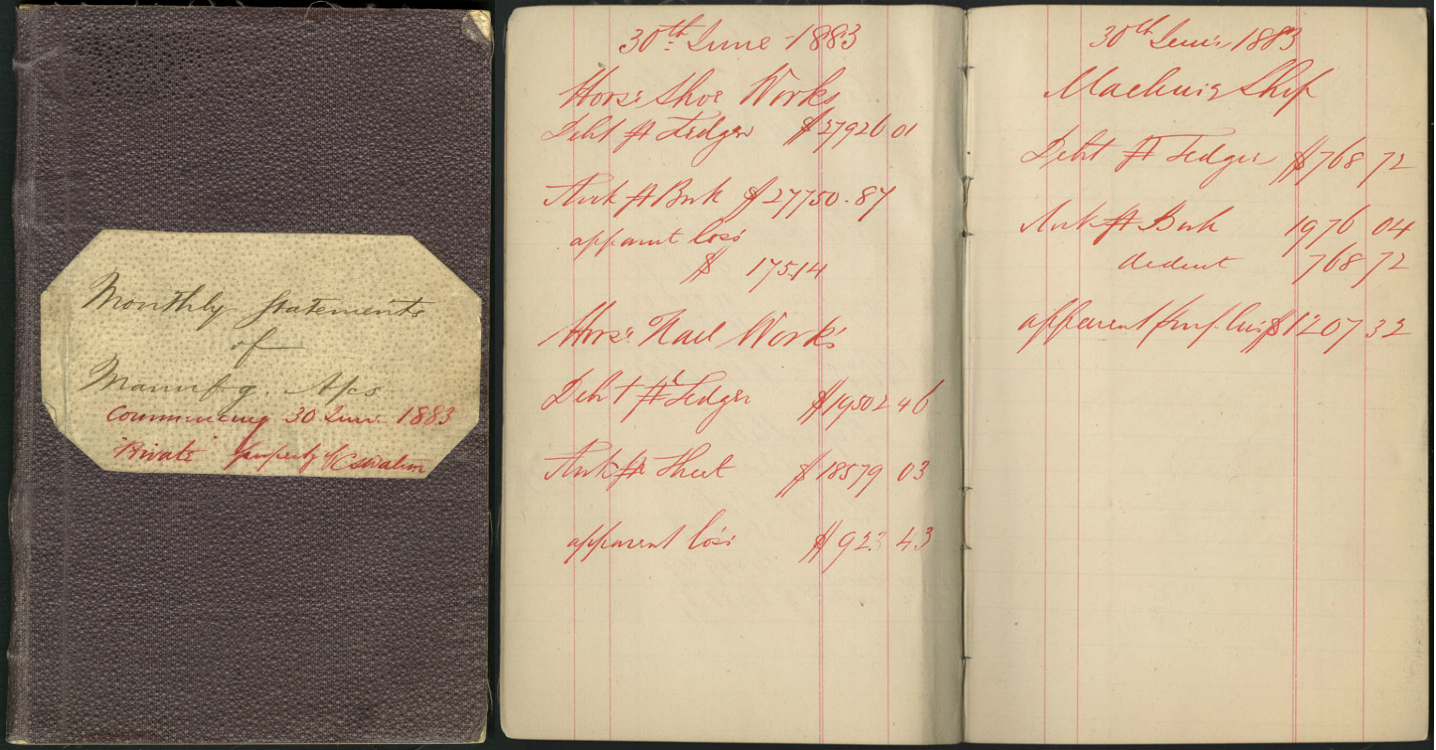 Monthly Statements
of
Manufg. A/cs
Commencing 30 June 1883
"Private" property of
30th June 1883
Horse Shoe Works
Debt pr Ledger $27926 01
Amt pr Book $27750.87
apparent loss
$ 175.14
Horse Nail Works
Debt pr Ledger $19502 46
Amt pr Sheet $18579 03
apparent loss $923 43
30th June 1883
Machine Shop
Debt pr Ledger $768 72
Amt pr Book 1976 04
deduct 768 72
apparent $1207 32